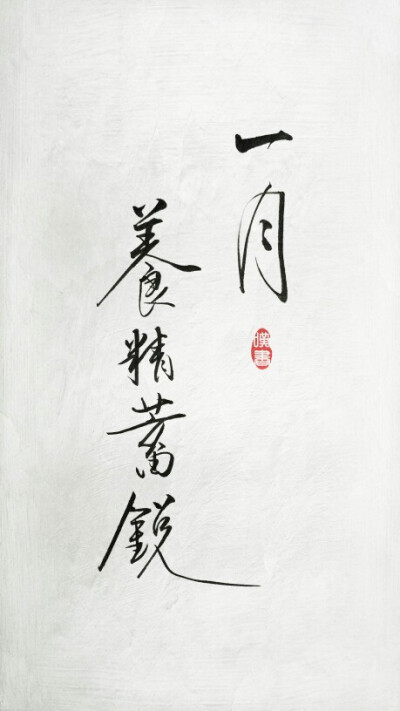 一月
養精蓄銳